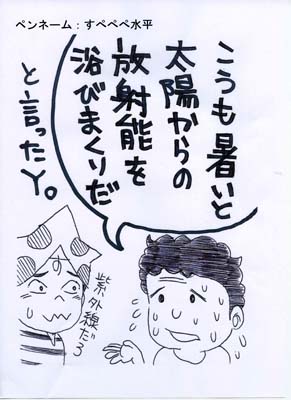 ペンネーム：すぺぺぺ水平
こうも暑いと
太陽からの
放射能を
浴びまくりだ
と言ったY。
す
紫外線だろ